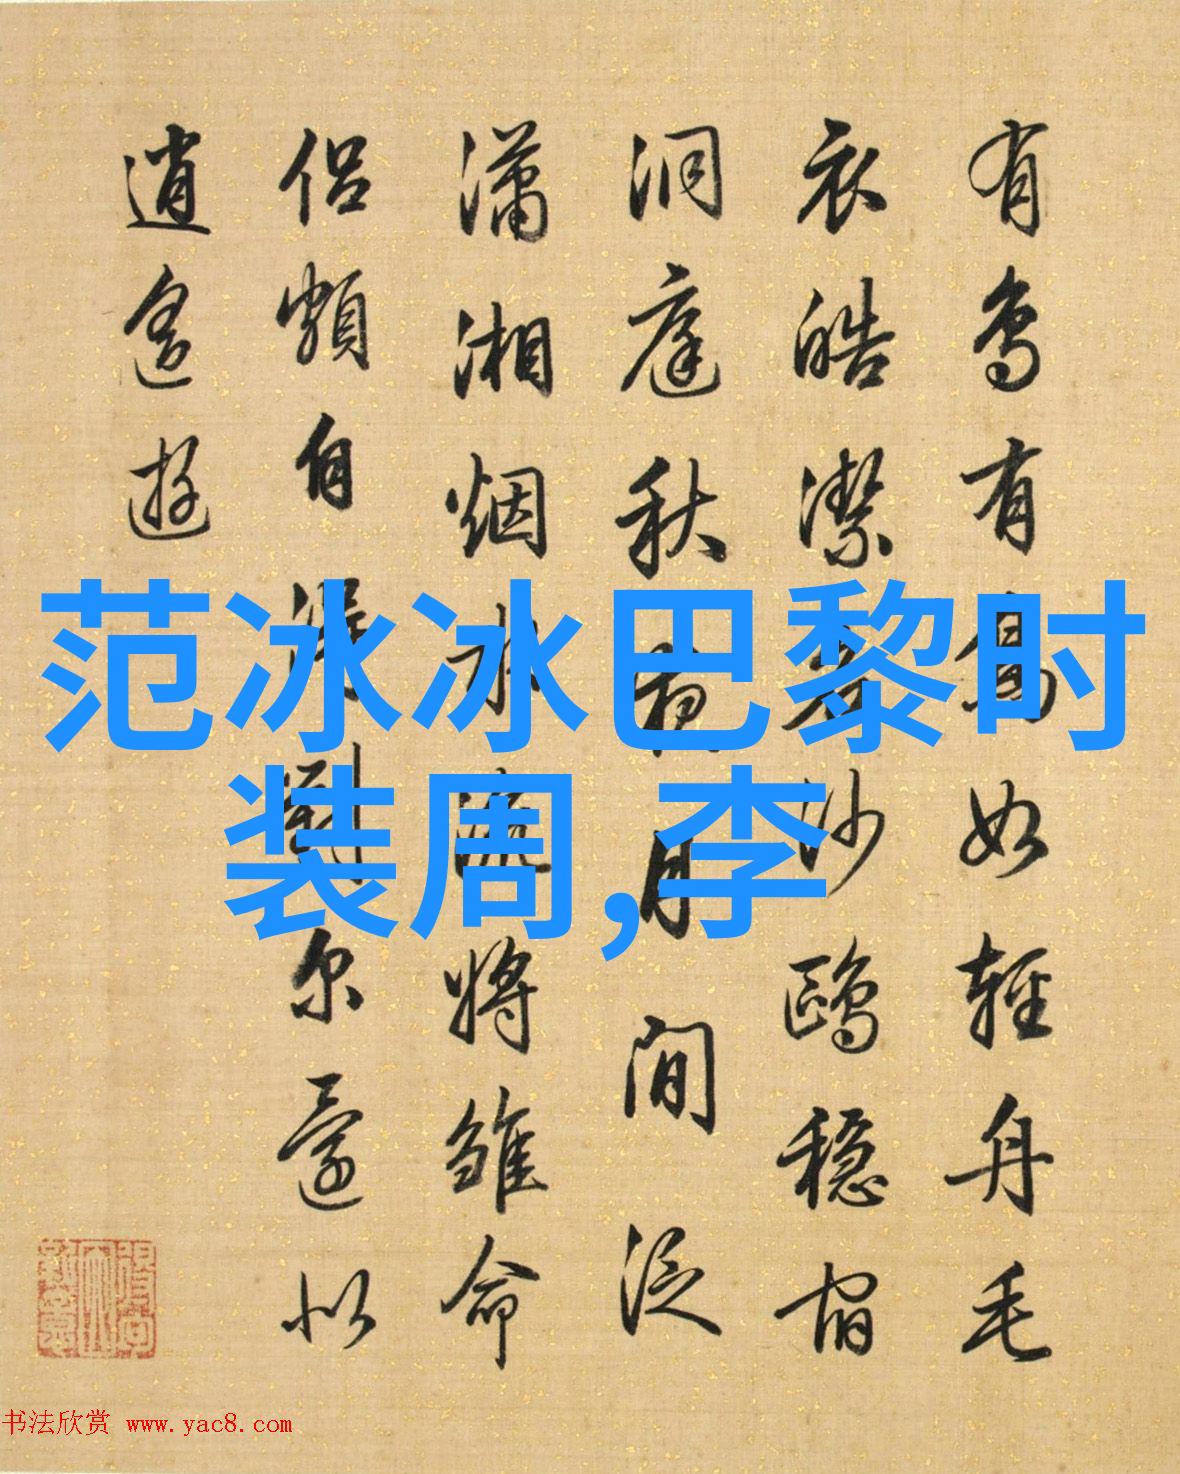 有鸟有鸟如轻舟毛
衣皓洁君沙鸥稳宿
洞庭秋夜月间泛
潇湘烟水流将雏命
侣频自
尔还似
逍遥游
范冰冰巴黎时
装周,李
书法欣赏 www.yac8.com